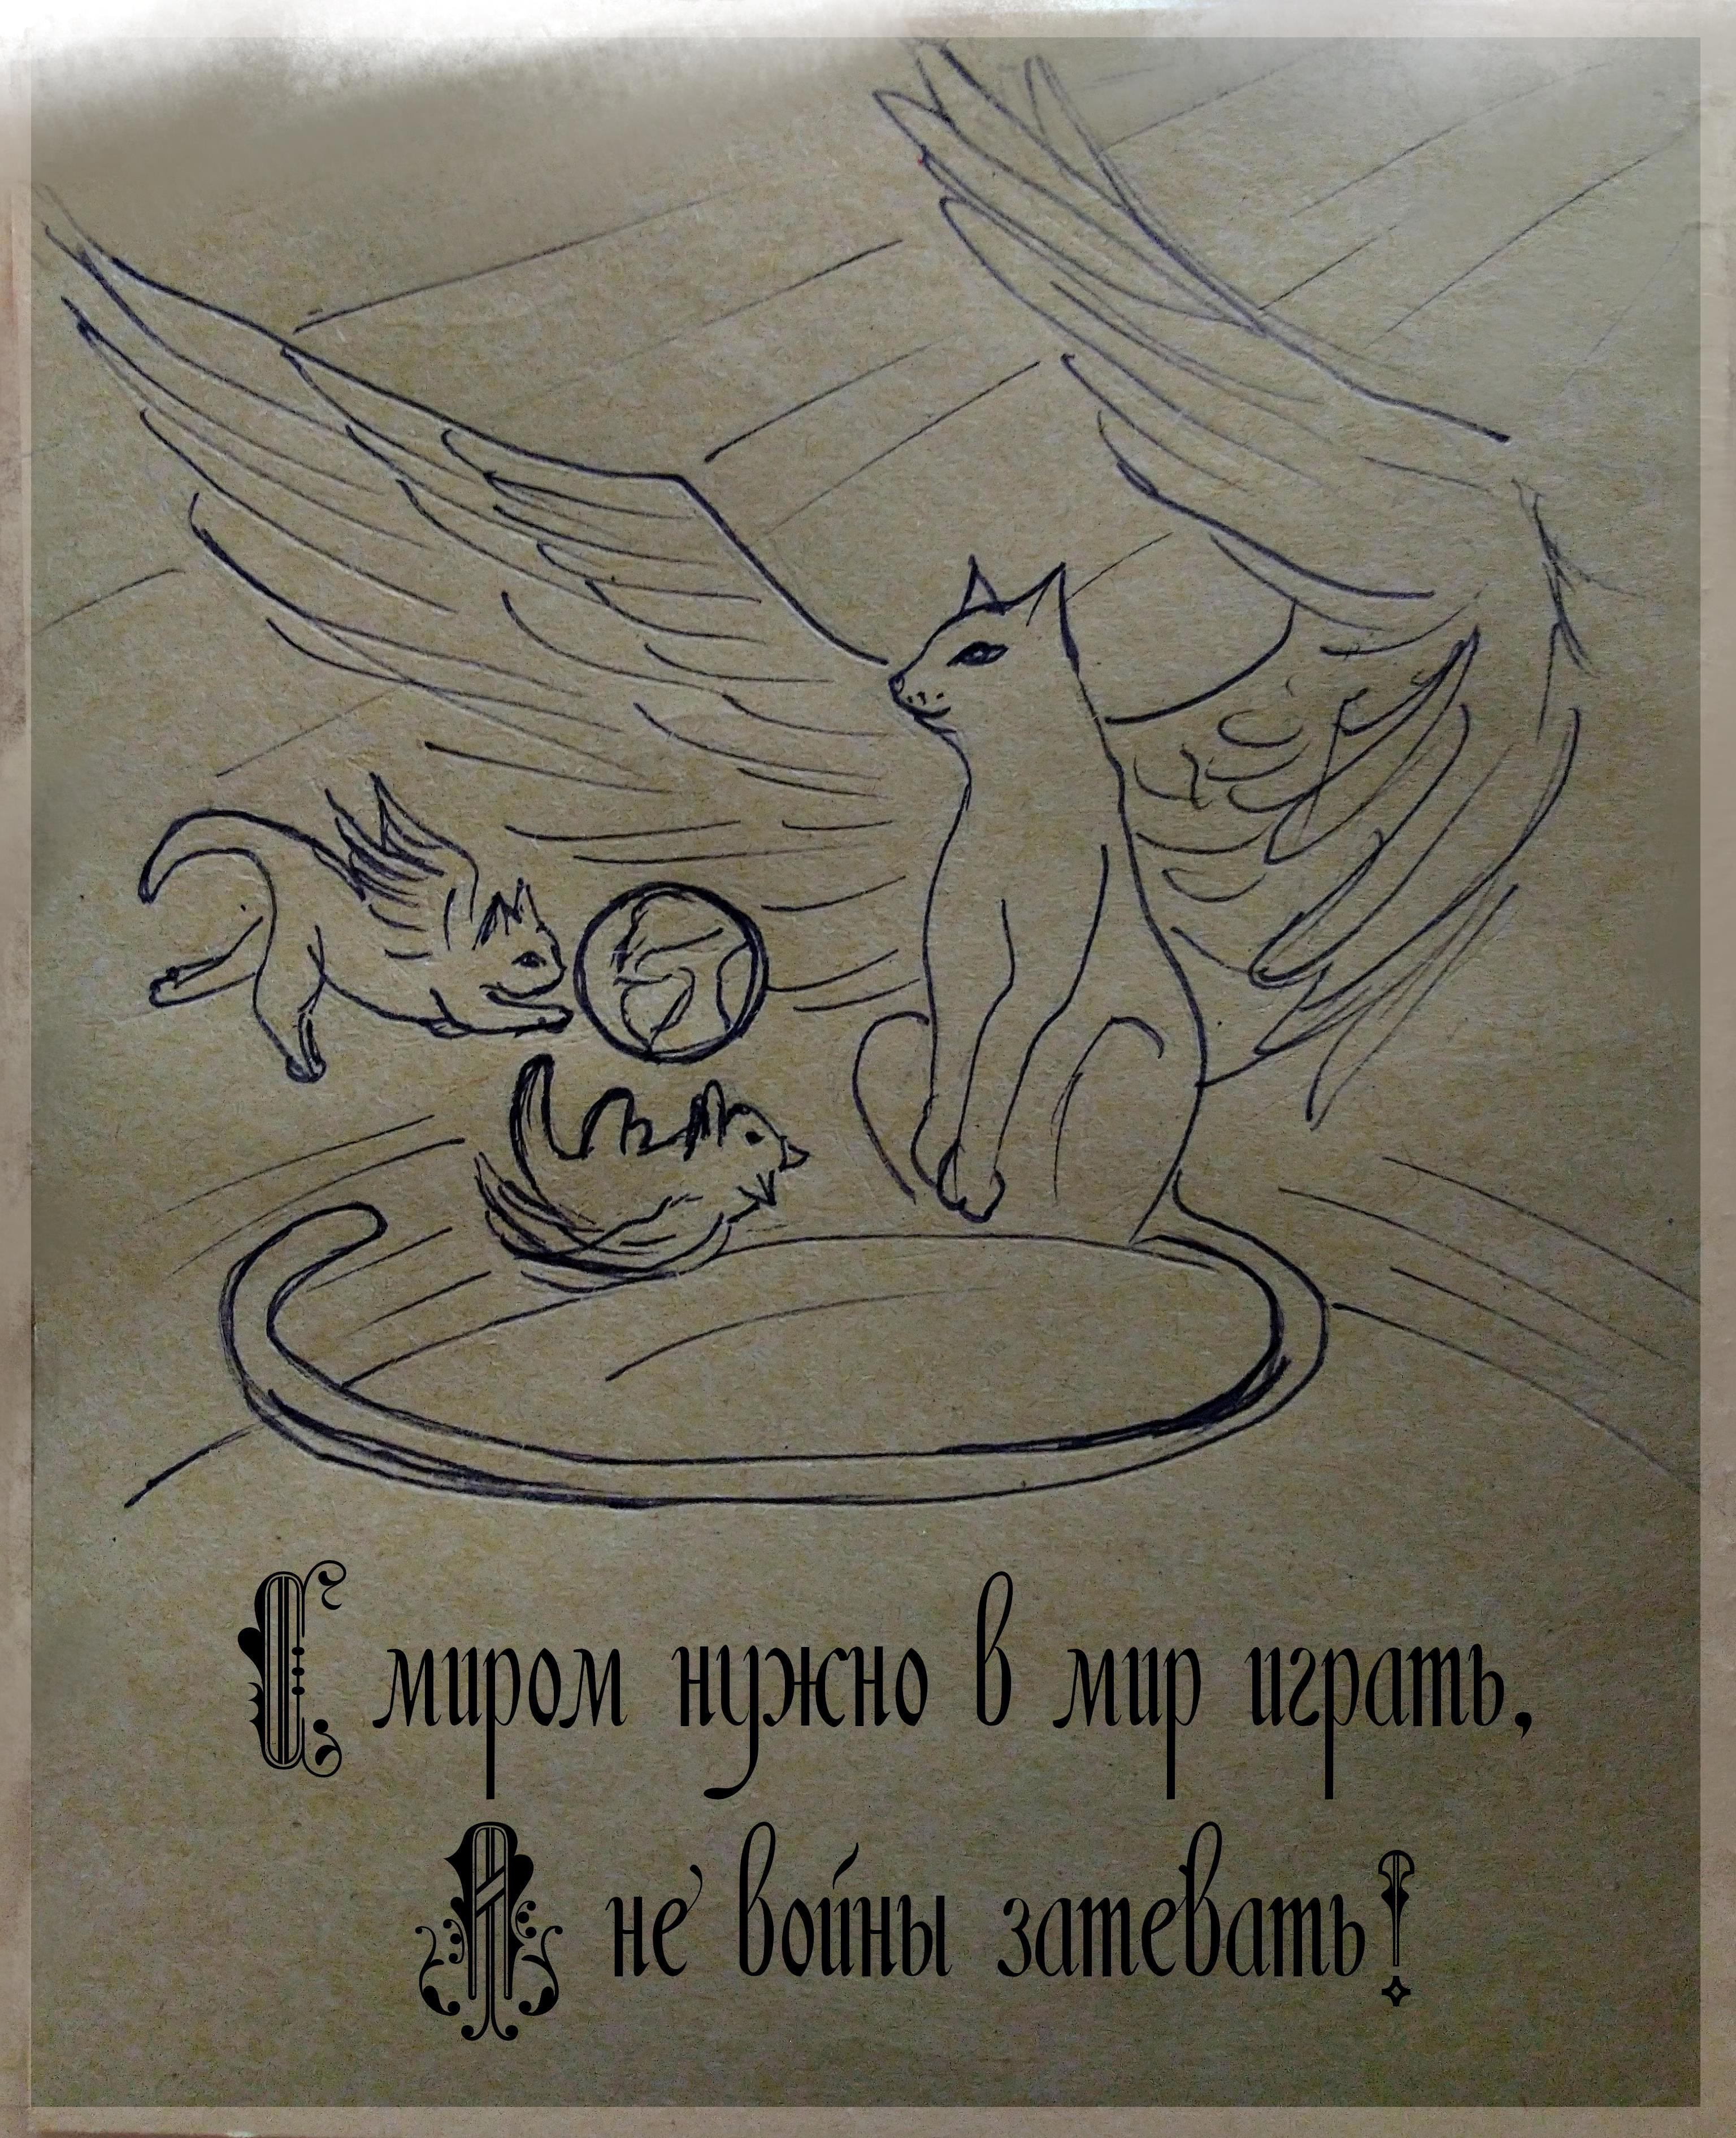 С миром нужно в мир играть,
А не войны затевать!